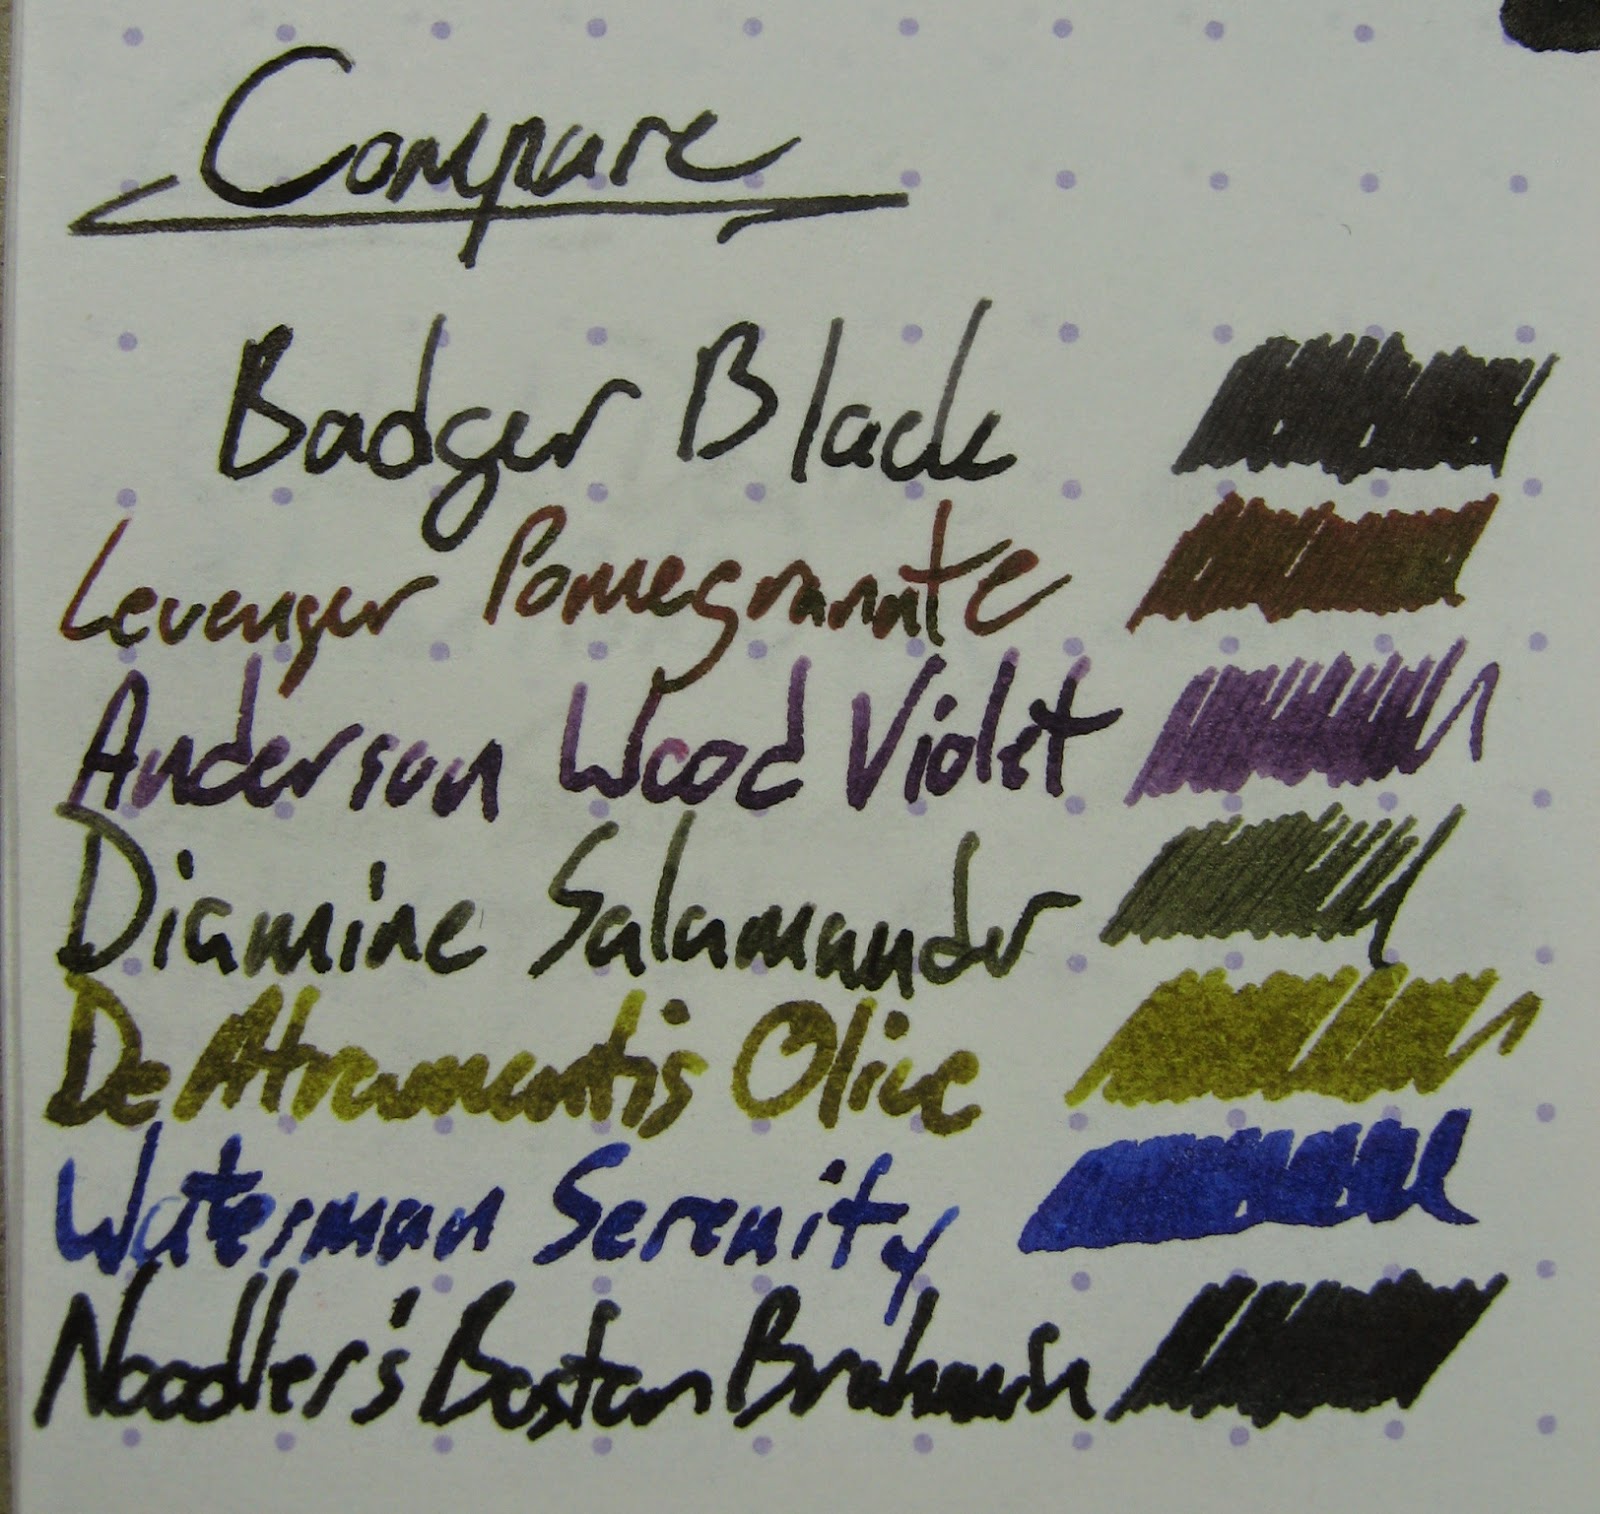 Compare
Badger Black
Levenger Pomegranate
Anderson Wood Violet
Diamine Salamander
De Atramentis Olive
Waterman Serenity
Noodler's Boston Brahmin